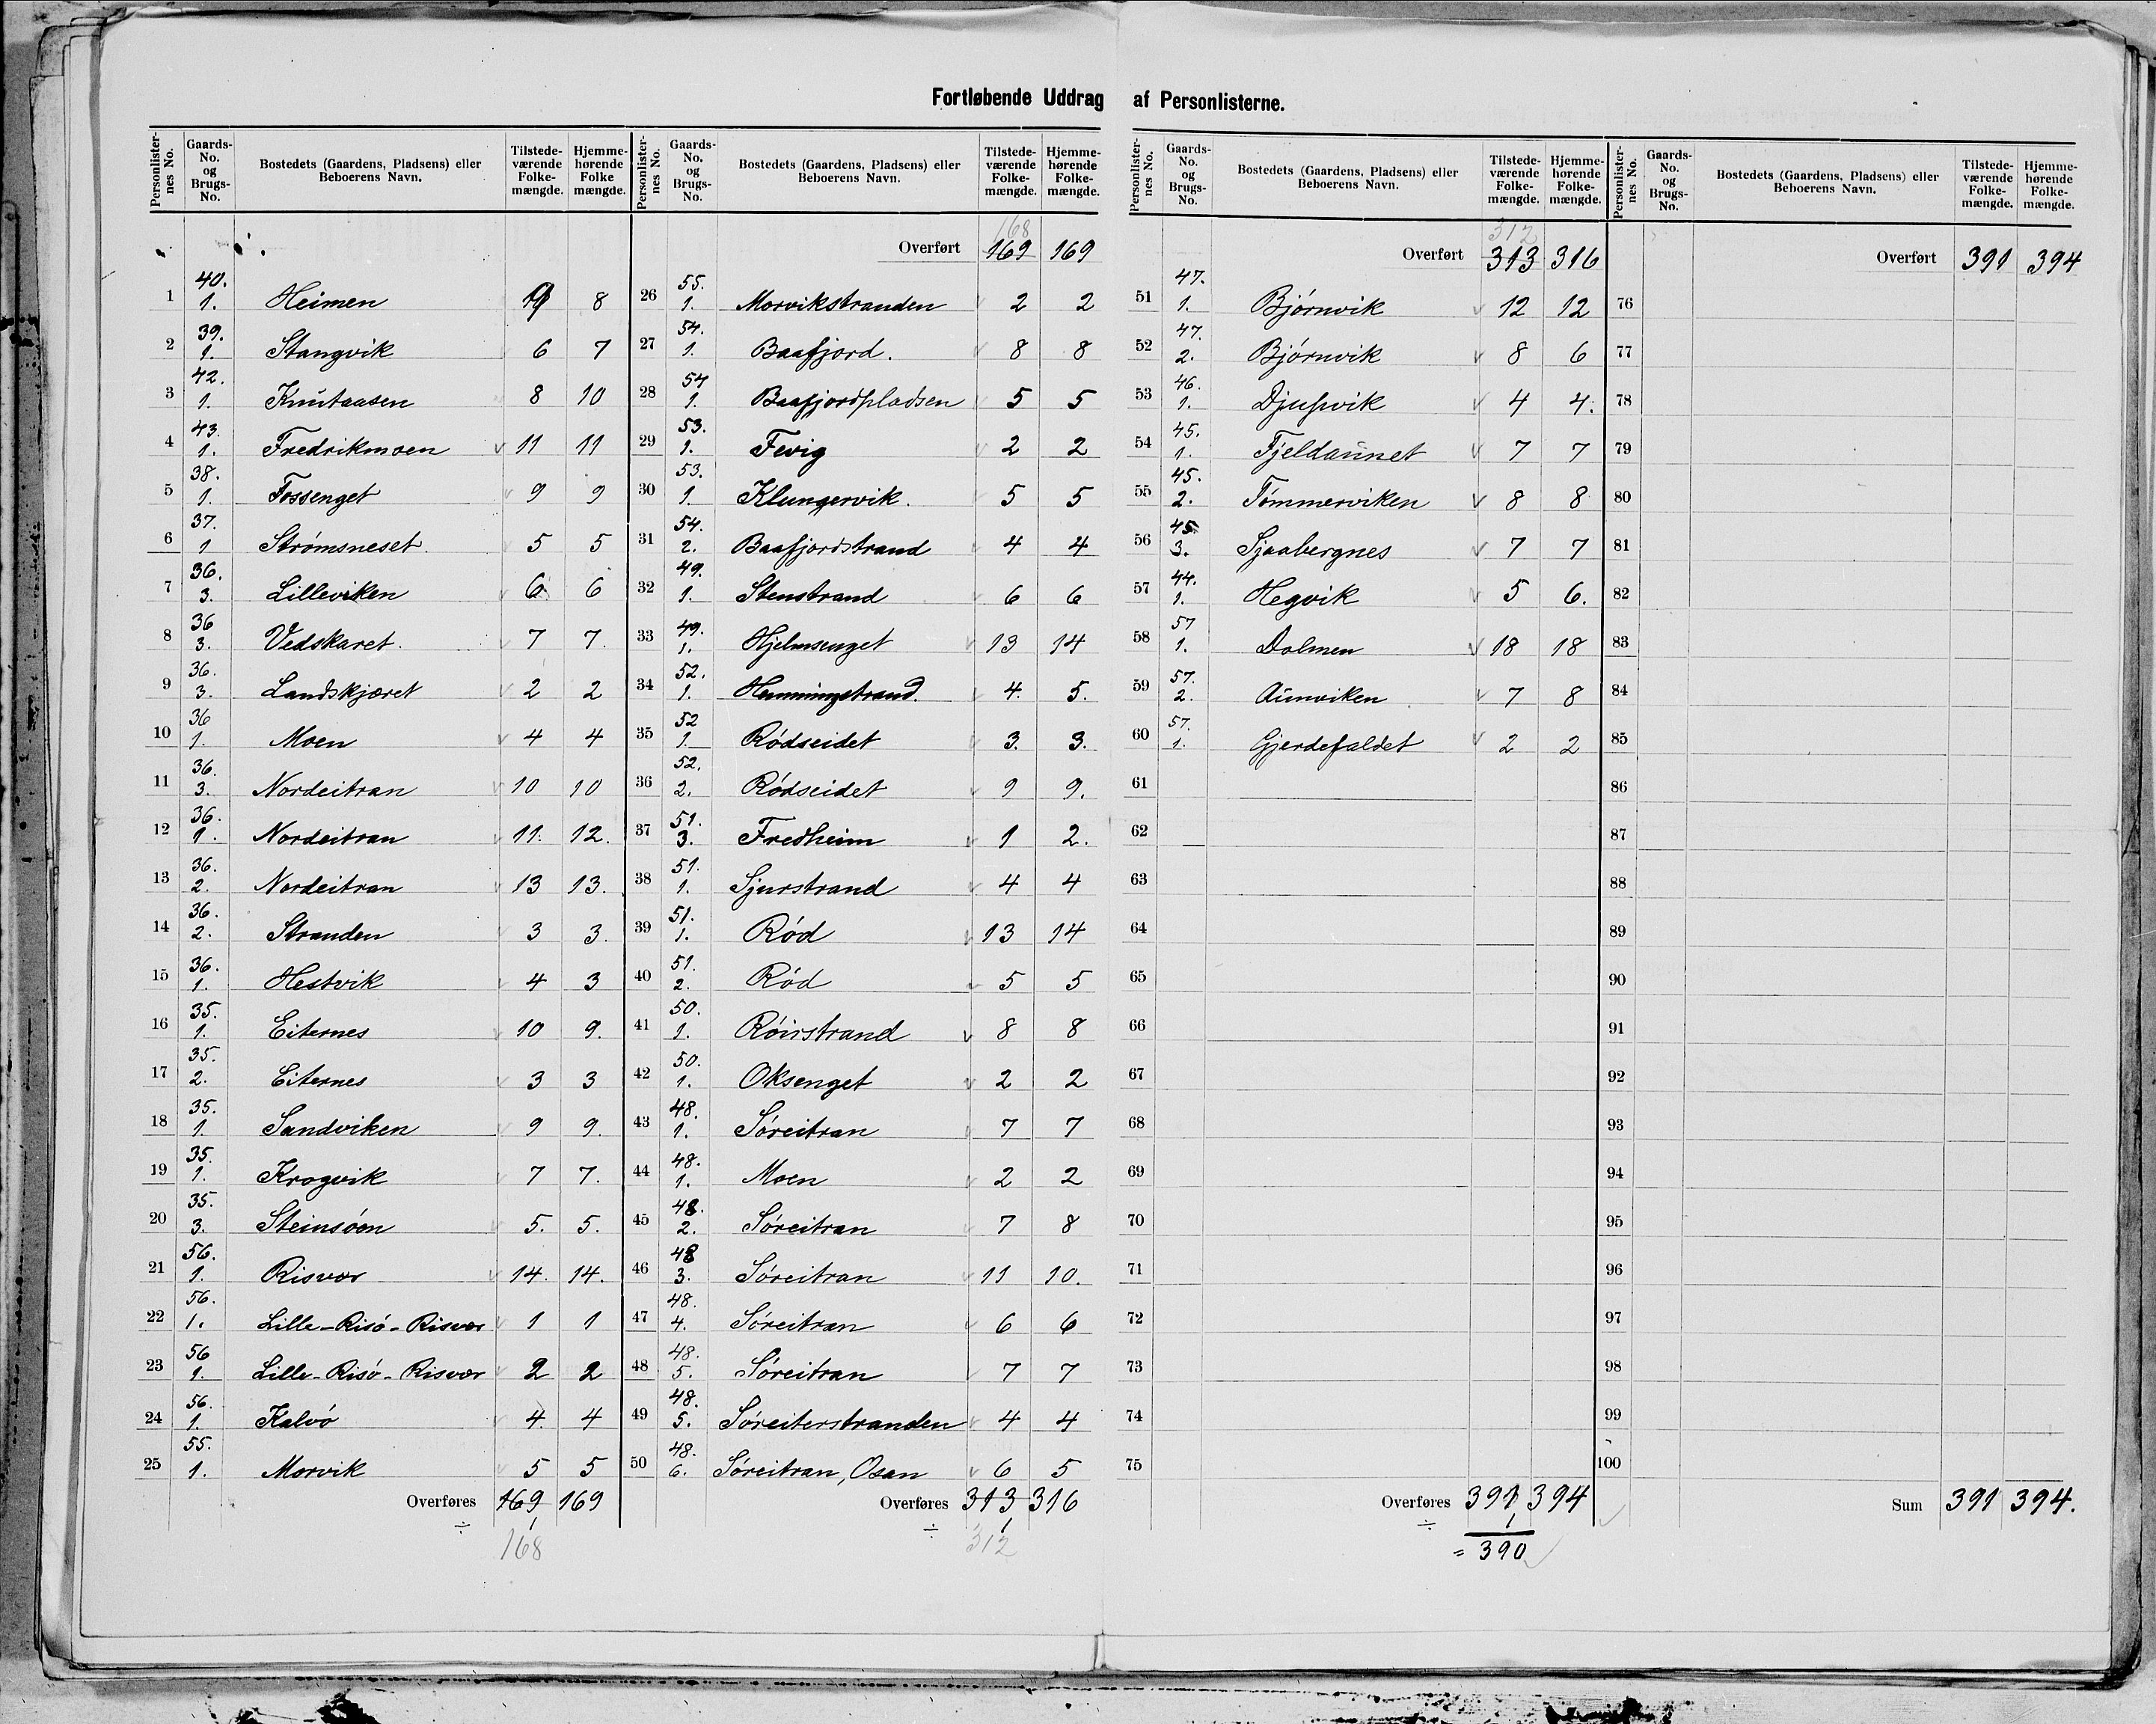 Fortløbende Uddrag af Personlisterne.
Personlisternes No. | Gaards-No. og Brugs-No. | Bostedets (Gaardens, Pladsens) eller Beboerens Navn. | Tilstedeværende Folkemængde. | Hjemmehørende Folke mængde.
1 | 40. 1. | Heimen | 9 | 8
2 | 39. 1. | Stangvik | 6 | 7
3 | 42. 1. | Knutaasen | 8 | 10
4 | 43. 1. | Fredrikmoen | 11 | 11
5 | 38. 1. | Fossenget | 9 | 9
6 | 37. 1 | Strømsneset. | 5 | 5
7 | 36. 3. | Lilleviken | 6 | 6
8 | 36 3. | Vedskaret. | 7 | 7.
9 | 36. 3. | Landskjæret | 2 | 2
10 | 36 1. | Moen | 4 | 4
11 | 36. 3. | Nordeitran | 10 | 10
12 | 36. 1. | Nordeitran | 11. | 12.
13 | 36. 2. | Nordeitran | 13 | 13.
14 | 36. 2. | Stranden | 3 | 3.
15 | 36. 1. | Hestvik | 4 | 3
16 | 35. 1. | Eiternes | 10 | 9.
17 | 35. 2. | Eiternes | 3 | 3
18 | 35. 1. | Sandviken | 9 | 9.
19 | 35. 1. | Krogvik | 7 | 7.
20 | 35. 3. | Steinsöen | 5. | 5.
21 | 56. 1. | Risvær | 14. | 14.
22 | 56. 1. | Lille-Risö-Risvær | 1 | 1
23 | 56 1. | Lille-Risö-Risvær | 2 | 2
24 | 56. 1. | Kalvö | 4. | 4
25 | 55. 1. | Morvik | 5 | 5
Overføres 169 169
÷ 1
168
Personlisternes No. | Gaards-No. og Brugs-No. | Bostedets (Gaardens, Pladsens) eller Beboerens Navn. | Tilstedeværende Folkemængde. | Hjemmehørende Folkemængde.
168
Overført 169 169
26 | 55. 1. | Morvikstranden | 2 | 2
27 | 54. 1. | Baafjord. | 8 | 8
28 | 54 1. | Baafjordpladsen | 5 | 5
29 | 53. 1. | Fevig | 2 | 2
30 | 53. 1. | Klungervik. | 5 | 5
31 | 54. 2. | Baafjordstrand | 4 | 4
32 | 49. 1. | Stenstrand | 6 | 6
33 | 49. 1. | Hjelmsenget | 13 | 14
34 | 52. 1. | Henningstrand. | 4. | 5.
35 | 52 1. | Rödseidet | 3. | 3.
36 | 52. 2. | Rödseidet | 9 | 9.
37 | 51. 3. | Fredheim | 1 | 2.
38 | 51. 1. | Sjurstrand | 4 | 4
39 | 51. 1. | Röd | 13 | 14
40 | 51. 2. | Röd | 5 | 5
41 | 50. 1. | Röirstrand | 8 | 8
42 | 50. 1. | Oksenget | 2 | 2
43 | 48. 1. | Söreitran | 7 | 7
44 | 48. 1. | Moen | 2 | 2
45 | 48. 2. | Söreitran | 7 | 8
46 | 48 3. | Söreitran | 11 | 10.
47 | 48. 4. | Söreitran | 6 | 6
48 | 48. 5. | Söreitran | 7 | 7
49 | 48. 5. | Söreiterstranden | 4 | 4
50 | 48. 6. | Söreitran, Osan | 6 | 5
Overføres 313 316
÷ 1
312
Personlisternes No. | Gaards-No. og Brugs-No. | Bostedets (Gaardens, Pladsens) eller Beboerens Navn. | Tilstedeværende Folkemængde. | Hjemmehørende Folkemængde.
312
Overført 313 316
51 | 47. 1. | Björnvik | 12 | 12
52 | 47. 2. | Björnvik | 8 | 6
53 | 46. 1. | Djupvik | 4 | 4.
54 | 45. 1. | Fjeldaunet | 7 | 7
55 | 45. 2. | Tömmerviken | 8 | 8
56 | 45. 3. | Sjaabergnes | 7 | 7
57 | 44. 1. | Hegvik | 5 | 6.
58 | 57 1. | Dolmen | 18 | 18
59 | 57. 2. | Aunviken | 7 | 8
60 | 57. 1. | Gjerdefaldet | 2 | 2
61
62
63
64
65
66
67
68
69
70
71
72
73
74
75
Overføres 391 394
÷ 1
= 390
Personlisternes No. | Gaards-No. og Brugs-No. | Bostedets (Gaardens, Pladsens) eller Beboerens Navn. | Tilstedeværende Folkemængde. | Hjemmehørende Folkemængde.
Overført 391 394
76
77
78
79
80
81
82
83
84
85
86
87
88
89
90
91
92
93
94
95
96
97
98
99
100
Sum 391 394.